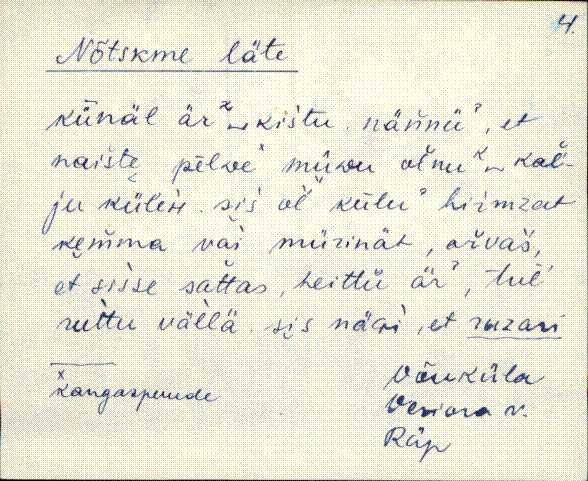 4.
Nõtskme läte
künäl ärˀ kištu. nännüˀ, et
naiste põlve müvvu olnuˀ kal-
ju külen. sis ol külu hirmzat
kemma vai mürinät, arvas,
et sisse sattas, heittü ärˀ, tul
ruttu vällä. sis nägi, et ruzari
x kangaspuude
Võuküla
Veriora v.
Räp